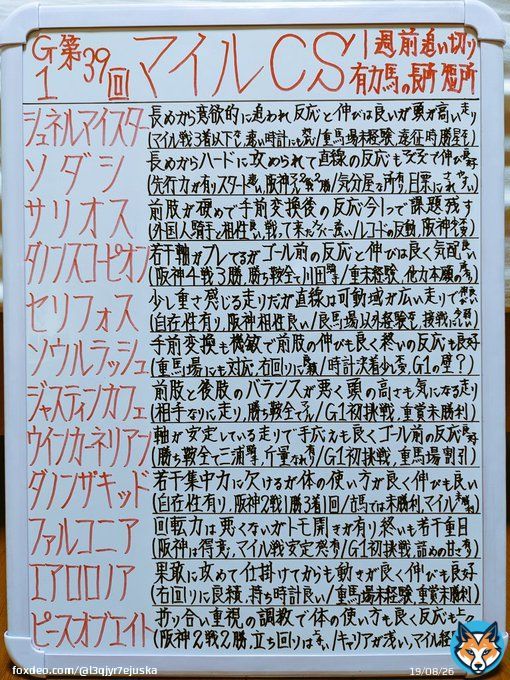 G1 第39回 マイルCS 1週前追い切り
有力馬の長所短所
シュネルマイスター 長めから意欲的に追われ反応と伸びは良いが頭が高い走り
(マイル戦3着以下を、速い時計にも /重馬場未経験、遠征時勝星
ソダシ 長めからハードに攻められて直線の反応も 伸び
(先行力が有りスタート 阪神 /気分屋な所有り、目標にされ
サリオス 前肢が硬めで手前変換後の反応今1つで課題残す
(外国人騎手と相性良い、戦って来た /レコードの反動、阪神
ダノンスコーピオン 若干軸がブレてるがゴール前の反応と伸びは良く気配良い
(阪神4戦3勝、勝ち鞍全て川田 /重未経験、他力本願の
セリフォス 少し重さ感じる走りだが直線は可動域が広い走りで
(自在性有り、阪神相性良い/良馬場以外経験 接戦に
ソウルラッシュ 手前変換も機敏で前肢の伸びも良く終いの反応も良好
(重馬場にも対応、右回りに /時計決着少し G1の壁?)
ジャスティンカフェ 前肢と後肢のバランスが悪く頭の高さも気になる走り
(相手なりに走り、勝ち鞍全て /G1初挑戦、重賞未勝利)
ウインカーネリアン 軸が安定している走りで手応えも良くゴール前の反応良好
(勝ち鞍全て三浦 斤量なれ /G1初挑戦、重馬場割引)
ダノンザキッド 若干集中力に欠けるが体の使い方が良く伸びも良い
(自在性有り、阪神2戦1勝3着1回/古馬では未勝利、マイル
ファルコニア 回転力は悪くないがトモ開きが有り終いも若干重目
(阪神は得意、マイル戦安定 /G1初挑戦、詰めの甘さ有)
エアロロノア 果敢に攻めて仕掛けてからも動きが良く伸びも良好
(右回りに良積、持ち時計良い/重馬場未経験、重賞未勝利)
ピースオブエイト 折り合い重視の調教で体の使い方も良く反応も
(阪神2戦2勝、立ち回りは /キャリアが浅い、マイル経験
foxdeo.com/@l3qjyr7ejuska
19/08/26